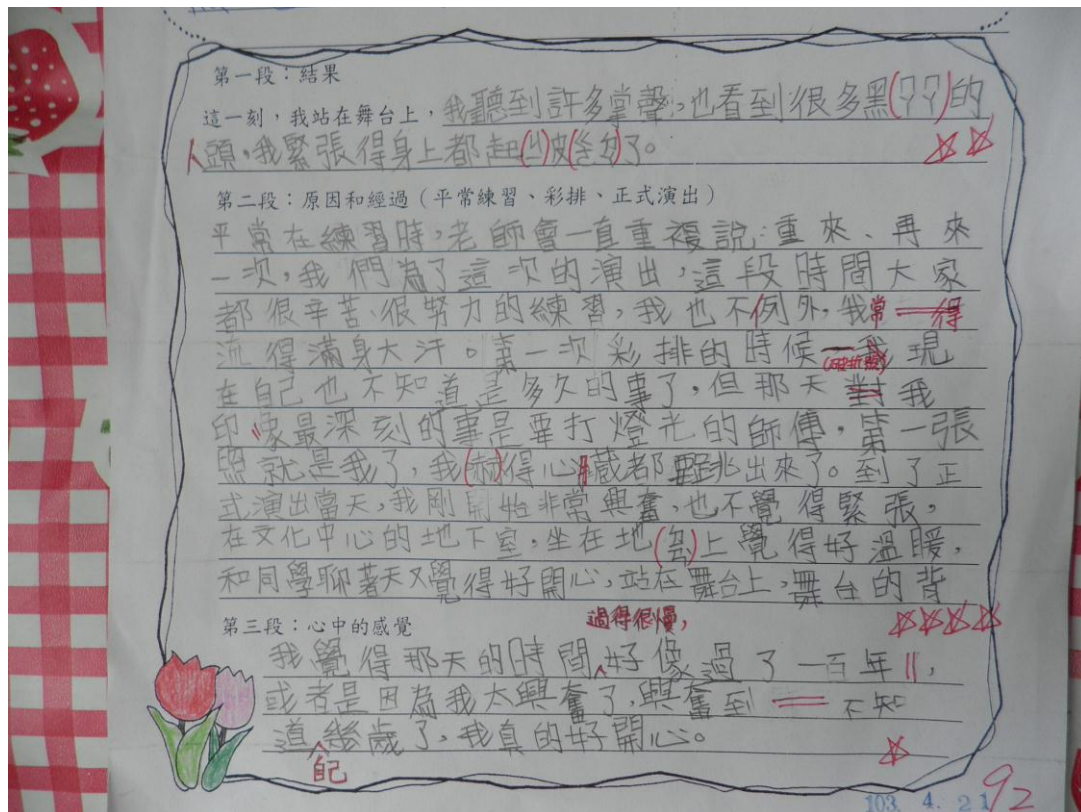 第一段:結果
這一刻,我站在舞台上,我聽到許多掌聲,也看到很多黑(ㄗㄗ)的
人頭,我緊張得身上都起(ㄐ)皮(ㄍㄜ)了。
第二段:原因和經過(平常練習、彩排、正式演出)
平常在練習時,老師會一直重複說:重來、再來
一次,我們為了這次的演出,這段時間大家
都很辛苦、很努力的練習,我也不例外,我常得
流得滿身大汗。第一次彩排的時候我現
(破折號)
在自己也不知道是多久的事了,但那天對我
印象最深刻的事是要打燈光的師傅,第一張
照就是我了,我(赫)得心臟都跳出來了。到了正
式演出當天,我剛開始非常興奮,也不覺得緊張,
在文化中心的地下室,坐在地()上覺得好溫暖,
和同學聊著天又覺得好開心,站在舞台上,舞台的背
第三段:心中的感覺
過得很慢,
我覺得那天的時間好像過了一百年,
或者是因為我太興奮了,興奮到不知
道幾歲了,我真的好開心。
自己
103. 4. 21
92